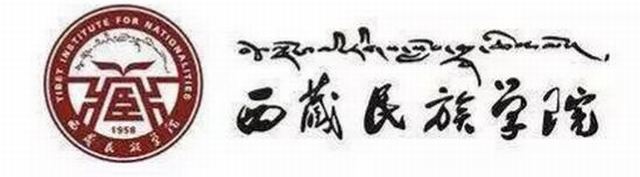 TIBET INSTITUTE FOR NATIONALITIES
1958
西藏民族学院
西藏民族学院